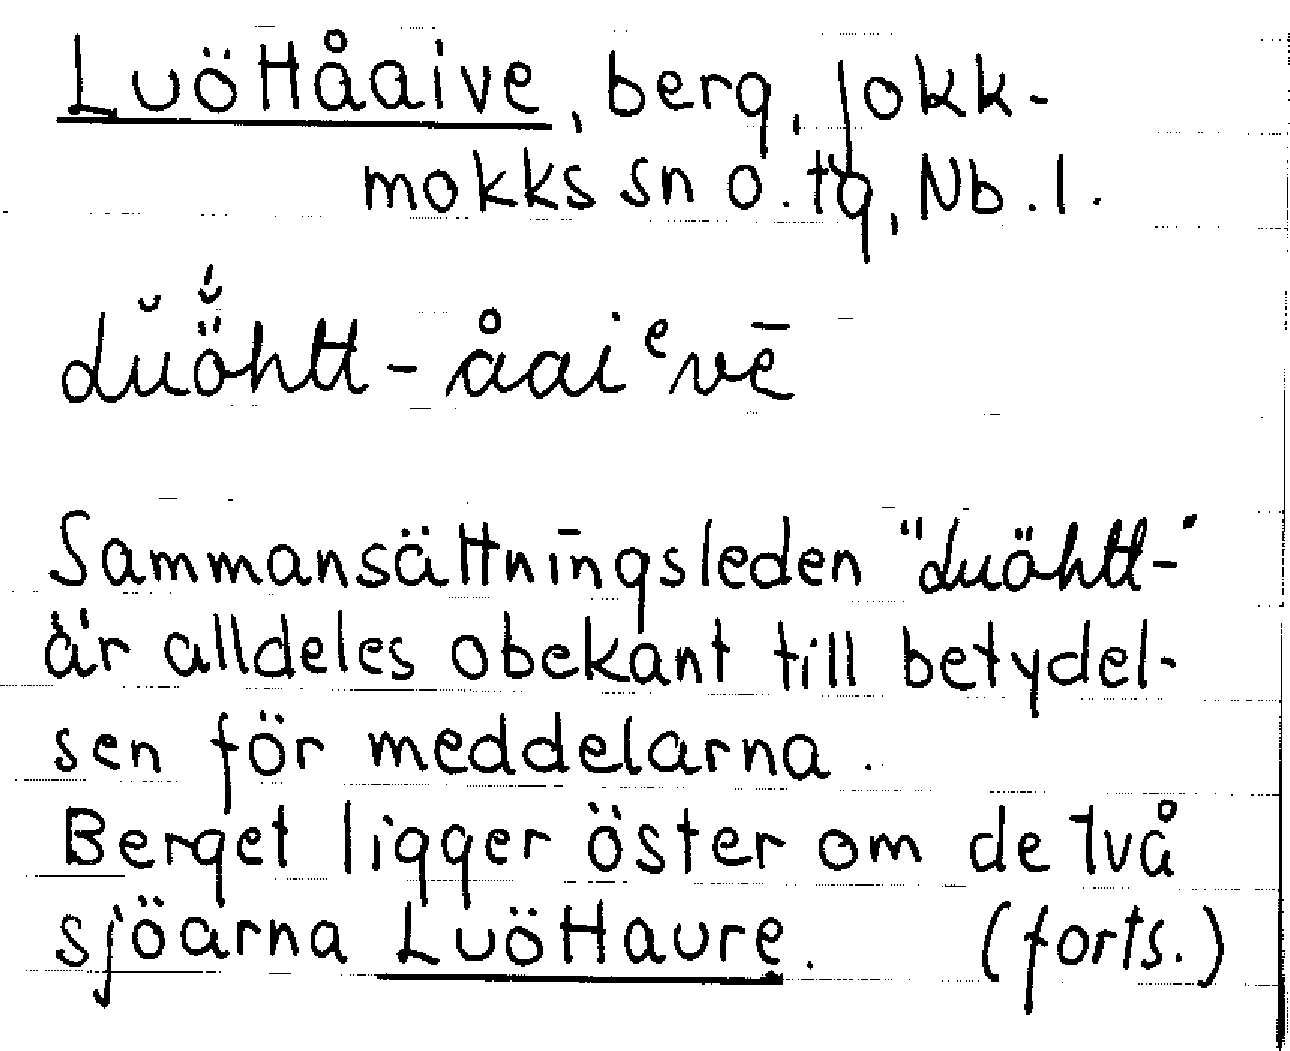 Luöttåaive, berg, Jokk-
mokks sn o. tg, Nb. l.
lŭö̆́htt-åaiᵉvē
Sammansättningsleden "luöhtt-"
är alldeles obekant till betydel-
sen för meddelarna.
Berget ligger öster om de två
sjöarna Luöttaure. (forts.)